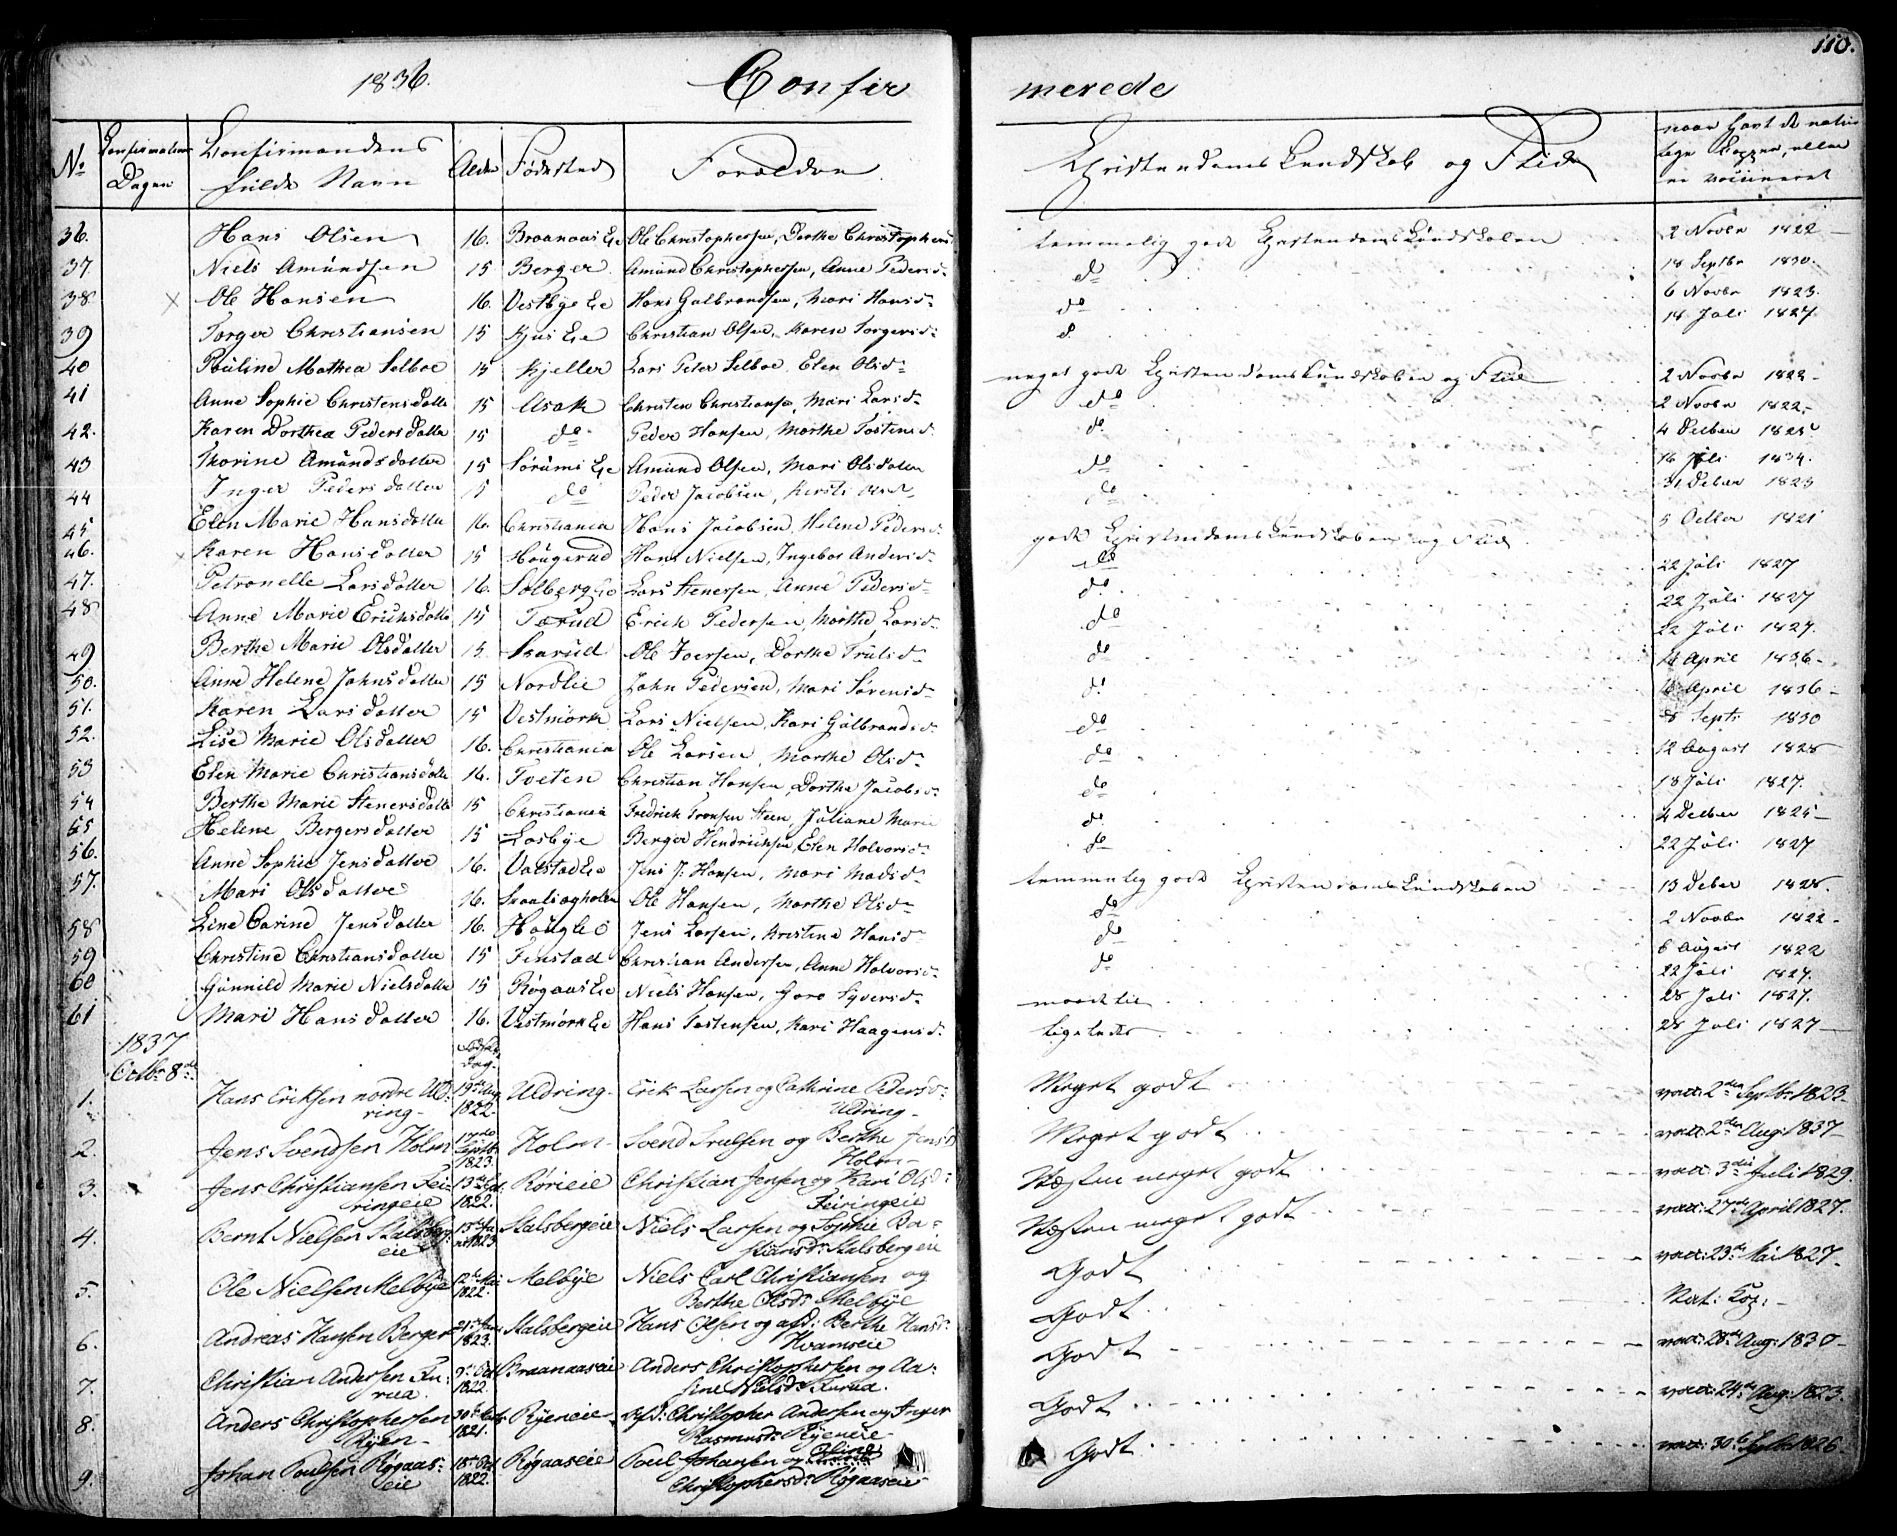 110.
1836. Confirmerede
No Confirmations Dagen Confirmandens fulde Navn Alder Fødested Forældre Christendoms Kundskab og Flid naar havt de naturlige Kopper, eller er vaccineret
36. Hans Olsen 16. Braanaas Eie Ole Christophersen, Dorthe Christophersd temmelig gode Christendomskundskaber 2 Novbr 1822
37 Niels Amundsen 15 Berger Amund Christophersen, Anne Pedersd: do 18 Septbr 1830.
38 × Ole Hansen 16. Vestbye Eie Hans Gulbrandsen, Mari Hansd: do 6 Novbr 1823.
39 Torger Christiansen 15 Kjus Eie Christian Olsen, Karen Torgersd: d. 18 Juli 1827.
40 Pauline Mathea Selboe 15 Kjeller Lars Peter Selboe, Elen Olsd: meget gode Christendomskundskaber og Flid 2 Novbr 1822
41 Anne Sophie Christensdatter 15 Asak Christen Christiansen, Mari Larsd: do 2 Novbr 1822
42. Karen Dorthea Pedersdatter 15 do Peder Hansen, Marthe Tostensd: do 4 Decbr 1825
43 Thorine Amundsdatter 15 Sørums Eie Amund Olsen, Mari Olsdatter do 16 Juli 1834.
44 Inger Pedersdatter 15 do Peder Jacobsen, Kirsti do 31 Decbr 1823
45 Elen Marie Hansdatter 16. Christiania Hans Jacobsen, Helene Pedersd: gode Christendomskundskaber og Flid 5 Octbr 1821
46. × Karen Hansdatter 15 Haugerud Hans Nielsen, Ingebor Andersd: do 22 Juli 1827
47. Petronelle Larsdatter 16. Solberg Eie Lars Stenersen, Anne Pedersd: do 22 Juli 1827
48 Anne Marie Ericksdatter 15 Tærud Erich Pedersen, Marthe Larsd: do 22 Juli 1827.
49 Berthe Marie Olsdatter 15. Skarud Ole Iversen, Dorthe Trulsd: do April 1836
50. Anne Helene Johnsdatter 15 Nordlie John Pedersen, Mari Sørensd: do April 1836
51. Karen Larsdatter 15 Vestmørk Lars Nielsen, Kari Gulbrandsd: do Septr 1830
52. Lise Marie Olsdatter 16. Christiania Ole Larsen, Marthe Olsd: do 12 August 1828
53 Elen Marie Christiansdatter 16. Tveten Christian Hansen, Dorthe Jacobsd: do 18 Juli 1827.
54 Berthe Marie Stenersdatter 15 Christiania Fredrick Tronsen Steen, Juliane Marie do 4 Decbr 1825
55 Helene Bergersdatter 15 Losbye Berger Hendricksen, Elen Halvorsd: do 22 Juli 1827
56. Anne Sophie Jensdatter 16. Valstad Eie Jens J: Hansen, Mari Madsd: temmelig gode Christendomskundskaber 13 Decbr 1828.
57. Mari Olsdatter 16. Skaaliagholen Ole Hansen, Marthe Olsd: do 2 Novbr 1822
58 Line Carine Jensdatter 16. Hauglie Jens Larsen, Kristine Hansd: do 6 August 1822
59 Christine Christiansdatter 15 Finstad Christian Andersen, Anne Halvorsd: do 22 Juli 1827.
60 Gunnild Marie Nielsdatter 15 Røgaas Eie Niels Hansen, Goro Syversd: maadelig 28 Juli 1827.
61 Mari Hansdatter 16. Vestmørk Eie Hans Tostensen, Kari Haagensd: ligeledes 28 Juli 1827
1837 Octbr 8de Fødsels Dag.
1. Hans Eriksen nordre Uldring 19de Aug 1822. Uldring Erik Larsen og Cathrine Pedersd: Uldring Meget godt vacc: 2den Septbr 1823
2. Jens Svendsen Holm 17de Septb. 1823. Holm Svend Trulsen og Berthe Jensd: Holm Meget godt vacc: 2den Aug: 1837
3. Jens Christiansen Feiringeie 13de Oct 1822. Rørieie Christian Jensen og Kari Olsd: Feiringeie Næsten meget godt vacc: 3die Juli 1829.
4. Bernt Nielsen Stalsbergeie 15de Januar 1823 Stalsbergeie Niels Larsen og Sophie Bastiansd: Stalsbergeie Næsten meget godt vacc: 27de April 1827.
5. Ole Nielsen Melbye 12te Mai 1822. Melbye Niels Carl Christiansen og Berthe Olsd: Melbye Godt vacc: 23de Mai 1827
6. Andreas Hansen Berger 21de Jan 1823. Stalsbergeie Hans Olsen og afd: Berthe Hansd: Hvamseie Godt Nat: Kop:
7. Christian Andersen Furua. 9de Oct 1822. Braanaaseie Anders Christophersen og Aasine Nielsd: Furua. Godt vacc: 28de Aug: 1830
8. Anders Christophersen Ryen 30te 1821. Ryeneie Afd: Christopher Andersen og Inger Rasmusd: Ryeneie Godt vacc: 24de Aug: 1823.
9. Johan Poulsen Røgaaseie 18de Oct 1822. Røgaaseie Poul Johansen og Oline Christophersd: Røgaaseie Godt vacc: 30te Septbr 1826